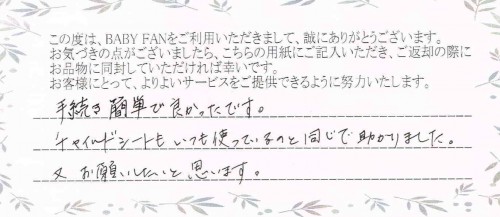 この度は、BABY FANをご利用いただきまして、誠にありがとうございます。
お気づきの点がございましたら、こちらの用紙にご記入いただき、ご返却の際に
お品物に同封していただければ幸いです。
お客様にとって、よりよいサービスをご提供できるように努力いたします。
手続き簡単で良かったです。
チャイルドシートもいつも使っているのと同じで助かりました。
又お願いしたいと思います。